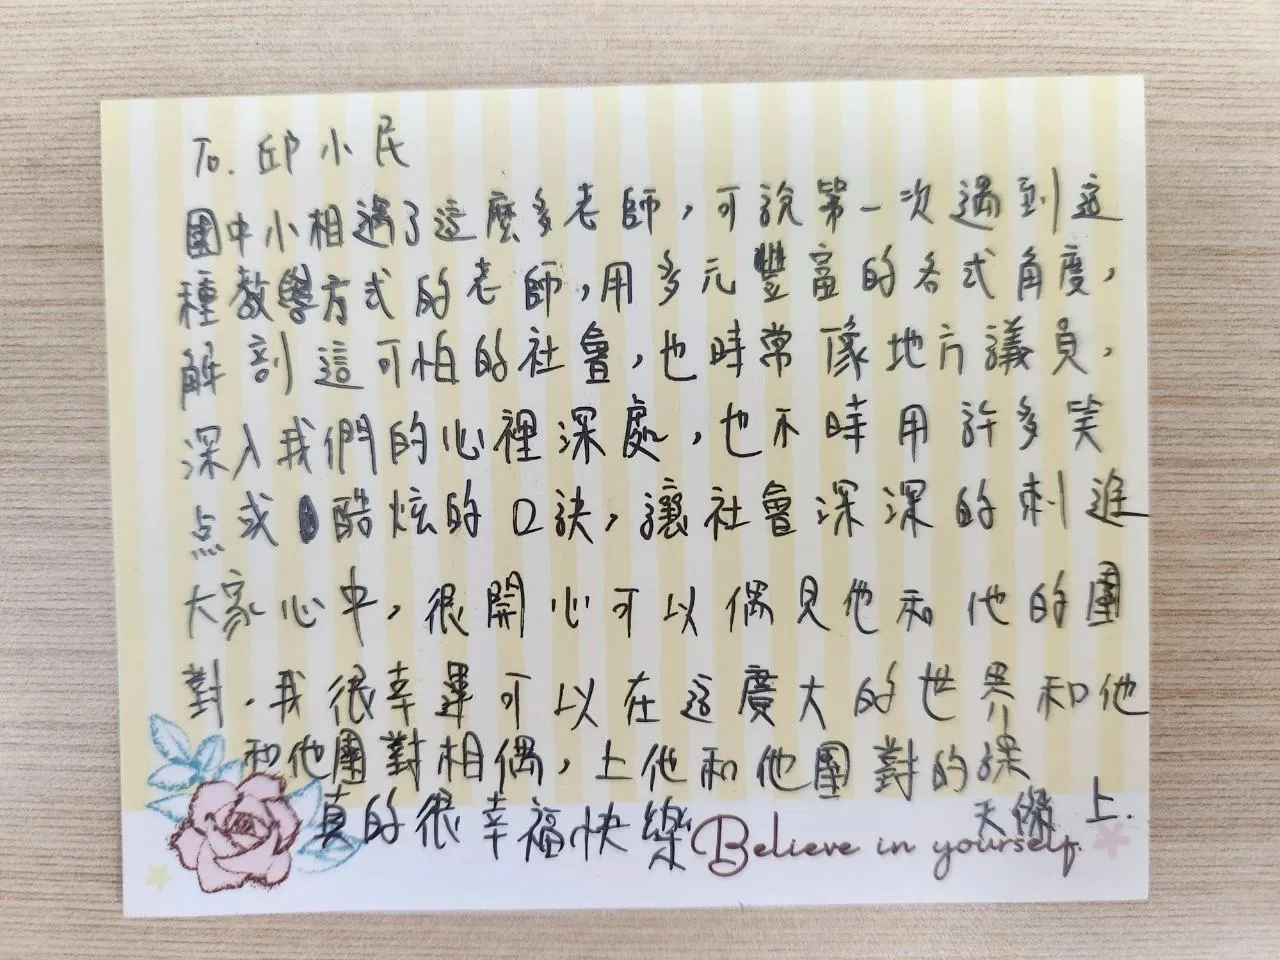 To. 邱小民
國中小相遇了這麼多老師，可說第一次遇到這
種教學方式的老師，用多元豐富的各式角度，
解剖這可怕的社會，也時常像地方議員，
深入我們的心裡深處，也不時用許多笑
点或酷炫的口訣，讓社會深深的刺進
大家心中，很開心可以偶見他和他的團
對，我很幸運可以在這廣大的世界和他
和他團對相偶，上他和他團對的課
真的很幸福快樂
天 上.
Believe in yourself.